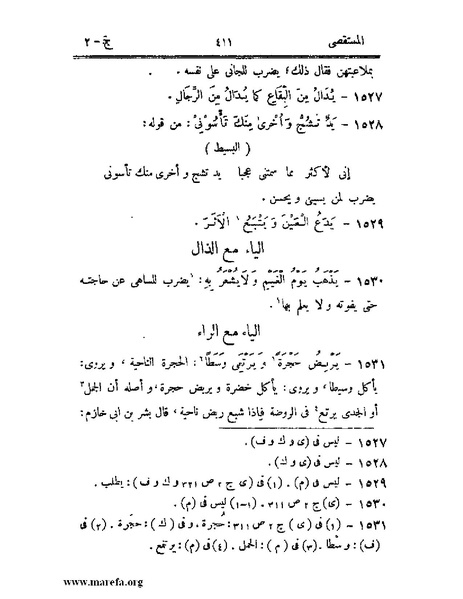 المستقصى ٤١١ ج - ٢
بملاعبتهن فقال ذلك؛ يضرب للجانى على نفسه .
١٥٢٧ - يُدَالُ مِنَ الْبِقَاعِ كَمَا يُدَالُ مِنَ الرِّجَالِ.
١٥٢٨ - يَدٌ تَشُجُّ وَأُخْرىٰ مِنْكَ تَأْسُونِىْ: من قوله:
( البسيط )
إنى لأكثر مما سمتنى عجبا يد تشج و أخرى منك تأسونى
يضرب لمن يسيئ و يحسن .
١٥٢٩ - يَدَعُ الْعَيْنَ وَ يَتْبَعُ ١ الْأَثَرَ .
الياء مع الذال
١٥٣٠ - يَذْهَبُ يَوْمُ الْغَيْمِ وَ لَا يُشْعَرُ بِهِ: ١يضرب للساهى عن حاجته
حتى يفوته و لا يعلم بها١.
الياء مع الراء
١٥٣١ - يَرْبِضُ حَجْرَةً١ وَ يَرْتَعِى وَسَطًا٢: الحجرة الناحية ، و يروى:
يأكل وسيطا، و يروى: يأكل خضرة و يربض حجرة، و أصله أن الجمل٣
أو الجدى يرتع٤ فى الروضة فإذا شبع ربض ناحية، قال بشر بن ابى خازم:
١٥٢٧ - ليس فى (ى و ك و ف).
١٥٢٨ - ليس فى (ى و ك).
١٥٢٩ - ليس فى (م) . (١) فى (ى ج ٢ ص ٣٢١ و ك و ف): يطلب.
١٥٣٠ - (ى) ج ٢ ص ٣١١ . (١-١) ليس فى (م).
١٥٣١ - (١) فى (ى) ج ٢ ص ٣١١: حُجرة. و فى (ك): حَجَرة. (٢) فى
(ف): وسْطا . (٣) فى (م): الحمل . (٤) فى (م): يرتفع.
www.marefa.org